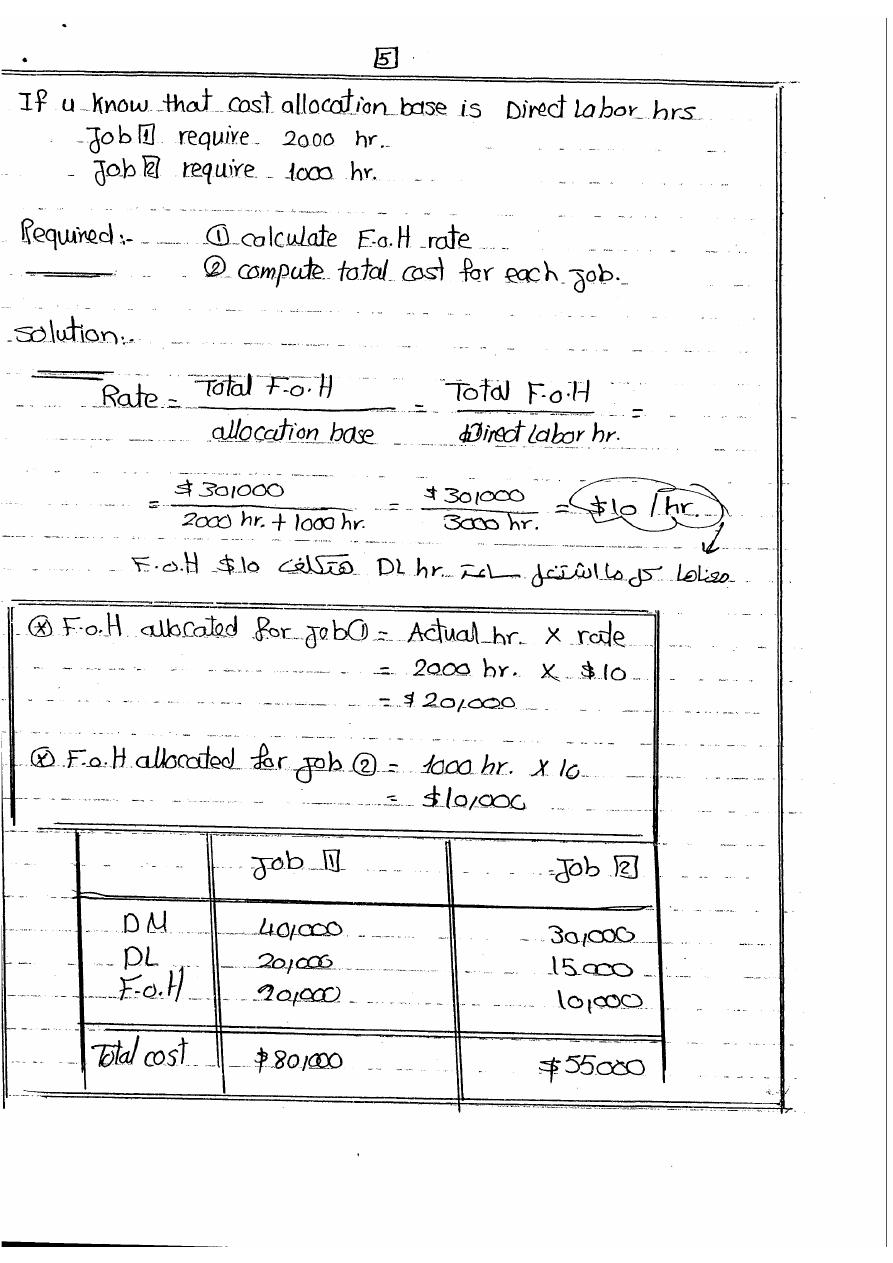 5
If u know that cost allocation base is Direct Labor hrs
Job 1 require 2000 hr.
Job 2 require 1000 hr.
Required:- ① calculate F.o.H rate
② compute total cost for each job.
Solution:-
Rate = Total F.o.H / allocation base = Total F.o.H / Direct labor hr. =
= $30,000 / 2000 hr. + 1000 hr. = $30,000 / 3000 hr. = $10 / hr.
معناها كل ما اشتغل ساعة DL hr. هتكلف $10 F.o.H
* F.o.H allocated for job ① = Actual hr. X rate
= 2000 hr. X $10
= $20,000
* F.o.H allocated for job ② = 1000 hr. X 10
= $10,000
Job 1 Job 2
DM 40,000 30,000
DL 20,000 15000
F.o.H 20,000 10,000
Total cost $80,000 $55000